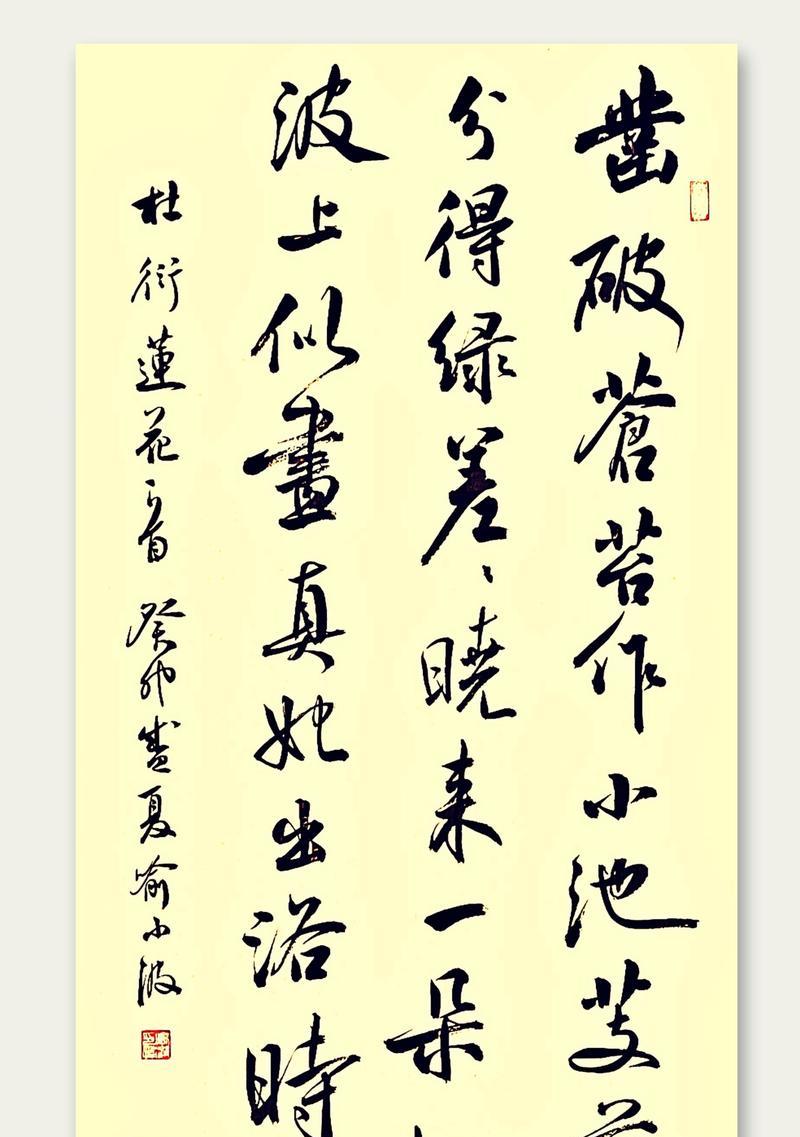 凿破蒼苔作小池芰
分得绿差〻曉来一朵
波上似畫真妃出浴時
杜衍蓮花一首 癸卯盛夏喻小波